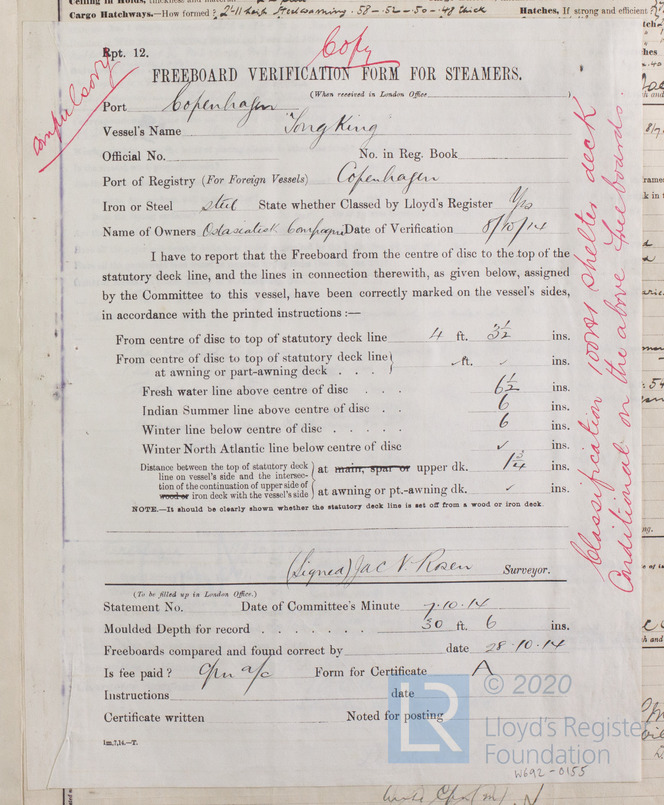 Cargo Hatchways.—How formed?
Hatches, If strong and efficient?
Rpt. 12.
Copy
compulsory
FREEBOARD VERIFICATION FORM FOR STEAMERS.
(When received in London Office )
Port Copenhagen
Vessel's Name "Tongking"
Official No. No. in Reg. Book
Port of Registry (For Foreign Vessels) Copenhagen
Iron or Steel steel State whether Classed by Lloyd's Register Yes
Name of Owners Ostasiatisk Compagni Date of Verification 8/10/14
I have to report that the Freeboard from the centre of disc to the top of the
statutory deck line, and the lines in connection therewith, as given below, assigned
by the Committee to this vessel, have been correctly marked on the vessel's sides,
in accordance with the printed instructions :—
From centre of disc to top of statutory deck line 4 ft. 3½ ins.
From centre of disc to top of statutory deck line
at awning or part-awning deck . . . ft. ✓ ins.
Fresh water line above centre of disc . . 6½ ins.
Indian Summer line above centre of disc . . 6 ins.
Winter line below centre of disc . . . . . 6 ins.
Winter North Atlantic line below centre of disc ✓ ins.
Distance between the top of statutory deck
line on vessel's side and the intersec-
tion of the continuation of upper side of
wood or iron deck with the vessel's side
at main, spar or upper dk. 1¾ ins.
at awning or pt.-awning dk. ✓ ins.
NOTE.—It should be clearly shown whether the statutory deck line is set off from a wood or iron deck.
(Signed) Jac V. Rosen Surveyor.
(To be filled up in London Office.)
Statement No. Date of Committee's Minute 7.10.14
Moulded Depth for record . . . . . . . 30 ft. 6 ins.
Freeboards compared and found correct by date 28.10.14
Is fee paid? Cpn a/c Form for Certificate A
Instructions date
Certificate written Noted for posting
1m,7,14.—T.
Classification 100A1 shelter deck
Conditional on the above freeboards.
LR
© 2020
Lloyd's Register
Foundation
W692-0155